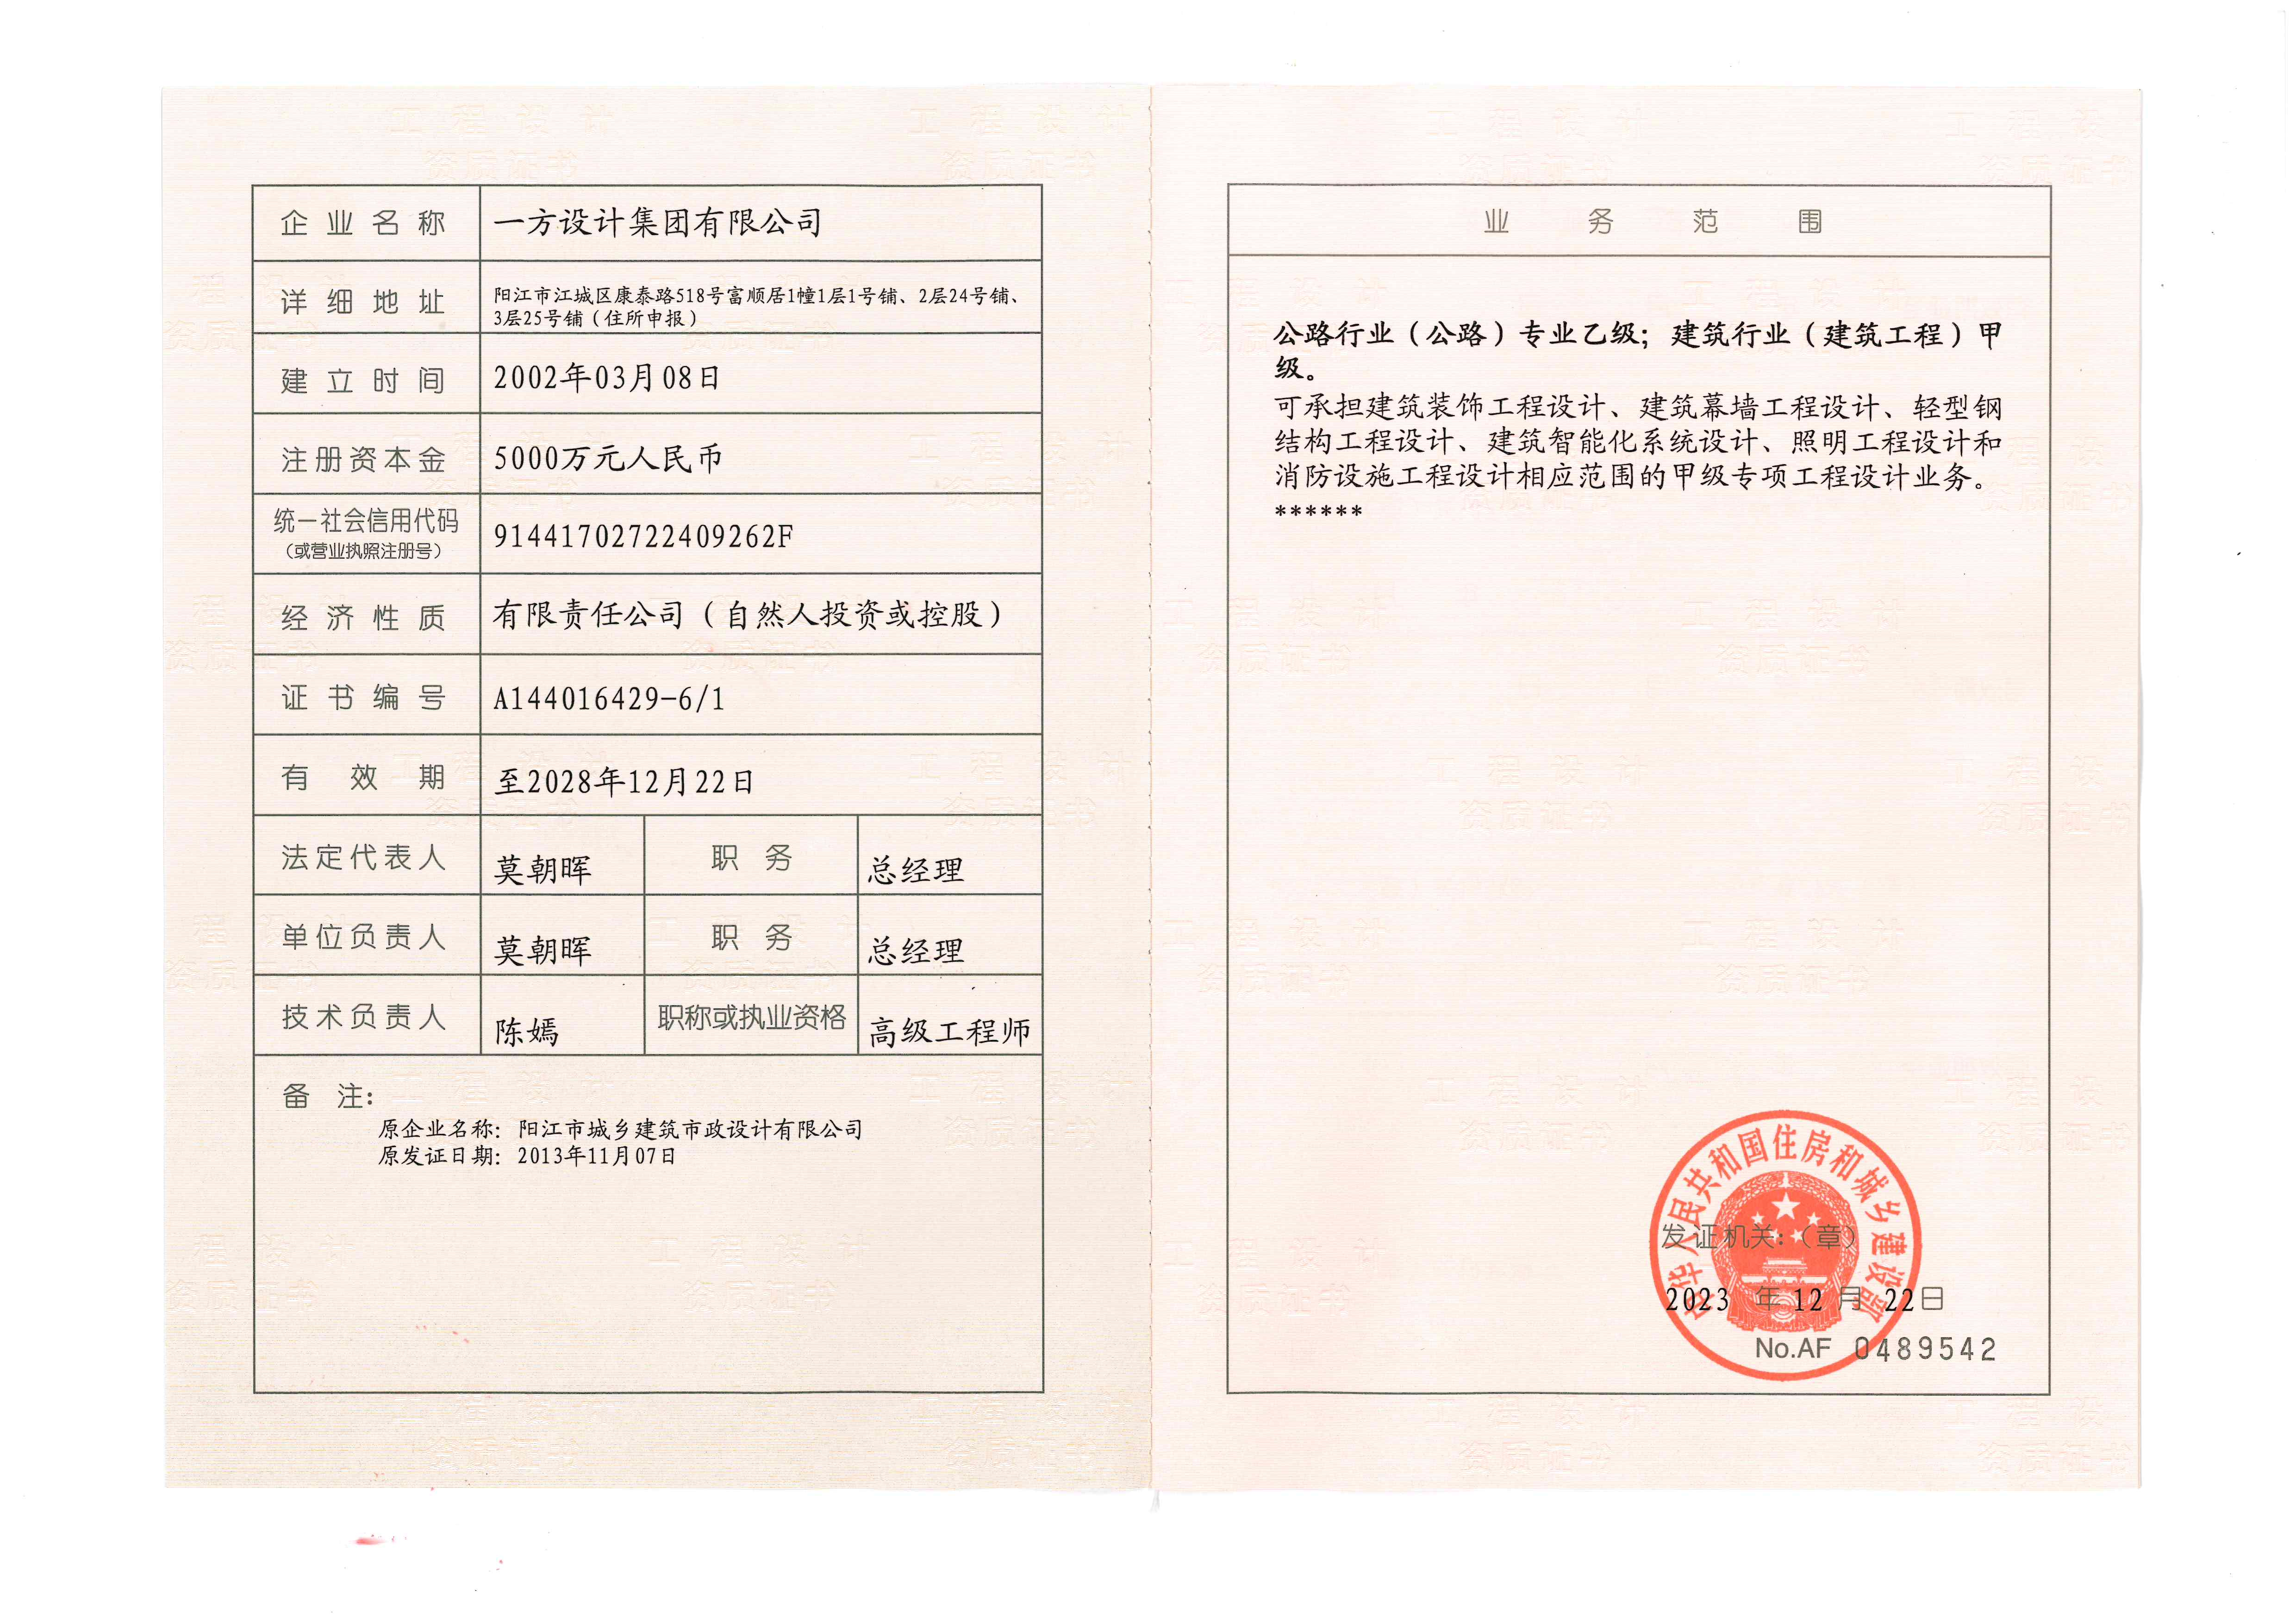 企业名称 一方设计集团有限公司
详细地址 阳江市江城区康泰路518号富顺居1幢1层1号铺、2层24号铺、
3层25号铺（住所申报）
建立时间 2002年03月08日
注册资本金 5000万元人民币
统一社会信用代码
（或营业执照注册号） 91441702722409262F
经济性质 有限责任公司（自然人投资或控股）
证书编号 A144016429-6/1
有效期 至2028年12月22日
法定代表人 莫朝晖 职务 总经理
单位负责人 莫朝晖 职务 总经理
技术负责人 陈嫣 职称或执业资格 高级工程师
备注：
原企业名称：阳江市城乡建筑市政设计有限公司
原发证日期：2013年11月07日
业务范围
公路行业（公路）专业乙级；建筑行业（建筑工程）甲
级。
可承担建筑装饰工程设计、建筑幕墙工程设计、轻型钢
结构工程设计、建筑智能化系统设计、照明工程设计和
消防设施工程设计相应范围的甲级专项工程设计业务。
******
中华人民共和国住房和城乡建设部
发证机关：（章）
2023年12月22日
No.AF 0489542
工程设计
资质证书